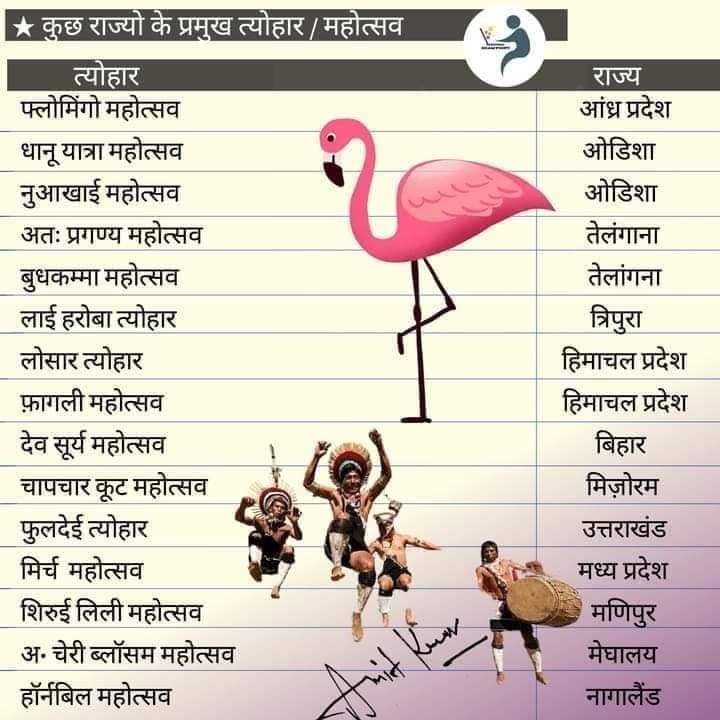 ★ कुछ राज्यो के प्रमुख त्योहार / महोत्सव
त्योहार राज्य
फ्लोमिंगो महोत्सव आंध्र प्रदेश
धानू यात्रा महोत्सव ओडिशा
नुआखाई महोत्सव ओडिशा
अतः प्रगण्य महोत्सव तेलंगाना
बुधकम्मा महोत्सव तेलांगना
लाई हरोबा त्योहार त्रिपुरा
लोसार त्योहार हिमाचल प्रदेश
फ़ागली महोत्सव हिमाचल प्रदेश
देव सूर्य महोत्सव बिहार
चापचार कूट महोत्सव मिज़ोरम
फुलदेई त्योहार उत्तराखंड
मिर्च महोत्सव मध्य प्रदेश
शिरुई लिली महोत्सव मणिपुर
अ॰ चेरी ब्लॉसम महोत्सव मेघालय
हॉर्नबिल महोत्सव नागालैंड
Amit Kumar